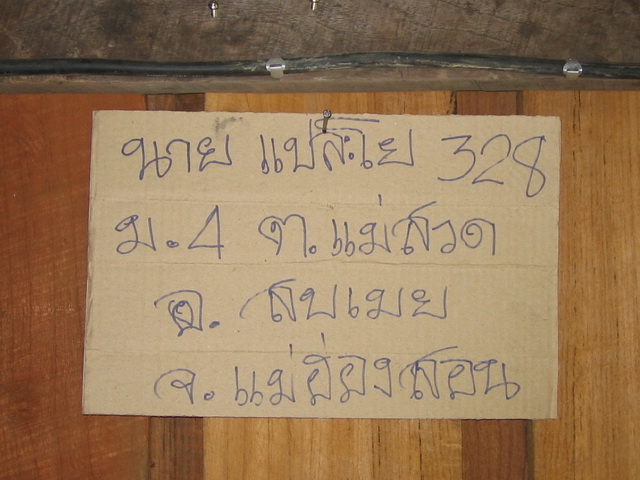 นาย แปสะโย 328
ม.4 ต.แม่สวด
อ. สบเมย
จ.แม่ฮ่องสอน